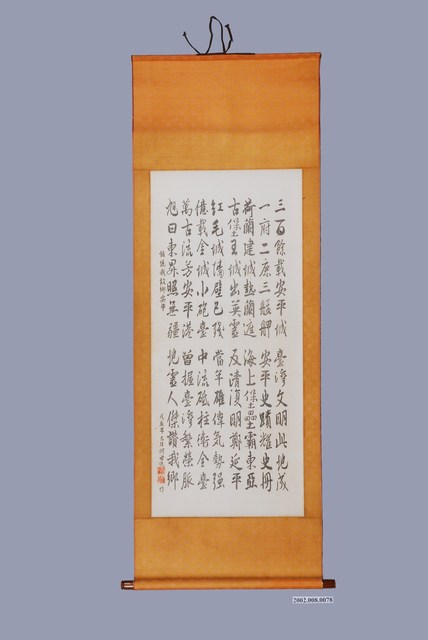 三百餘載安平城 臺灣文明此地成
一府二鹿三艋舺 安平史蹟耀史冊
荷蘭建城熱蘭遮 海上堡壘霸東亞
古堡王城出英靈 反清復明鄭延平
紅毛城墻壁已殘 當年雄偉氣勢强
億載金城小砲臺 中流砥柱衛全臺
萬古流芳安平港 曾握臺灣繁榮脈
旭日東昇照無疆 地靈人傑讚我鄉
我故鄉安平
作
2002.008.0078